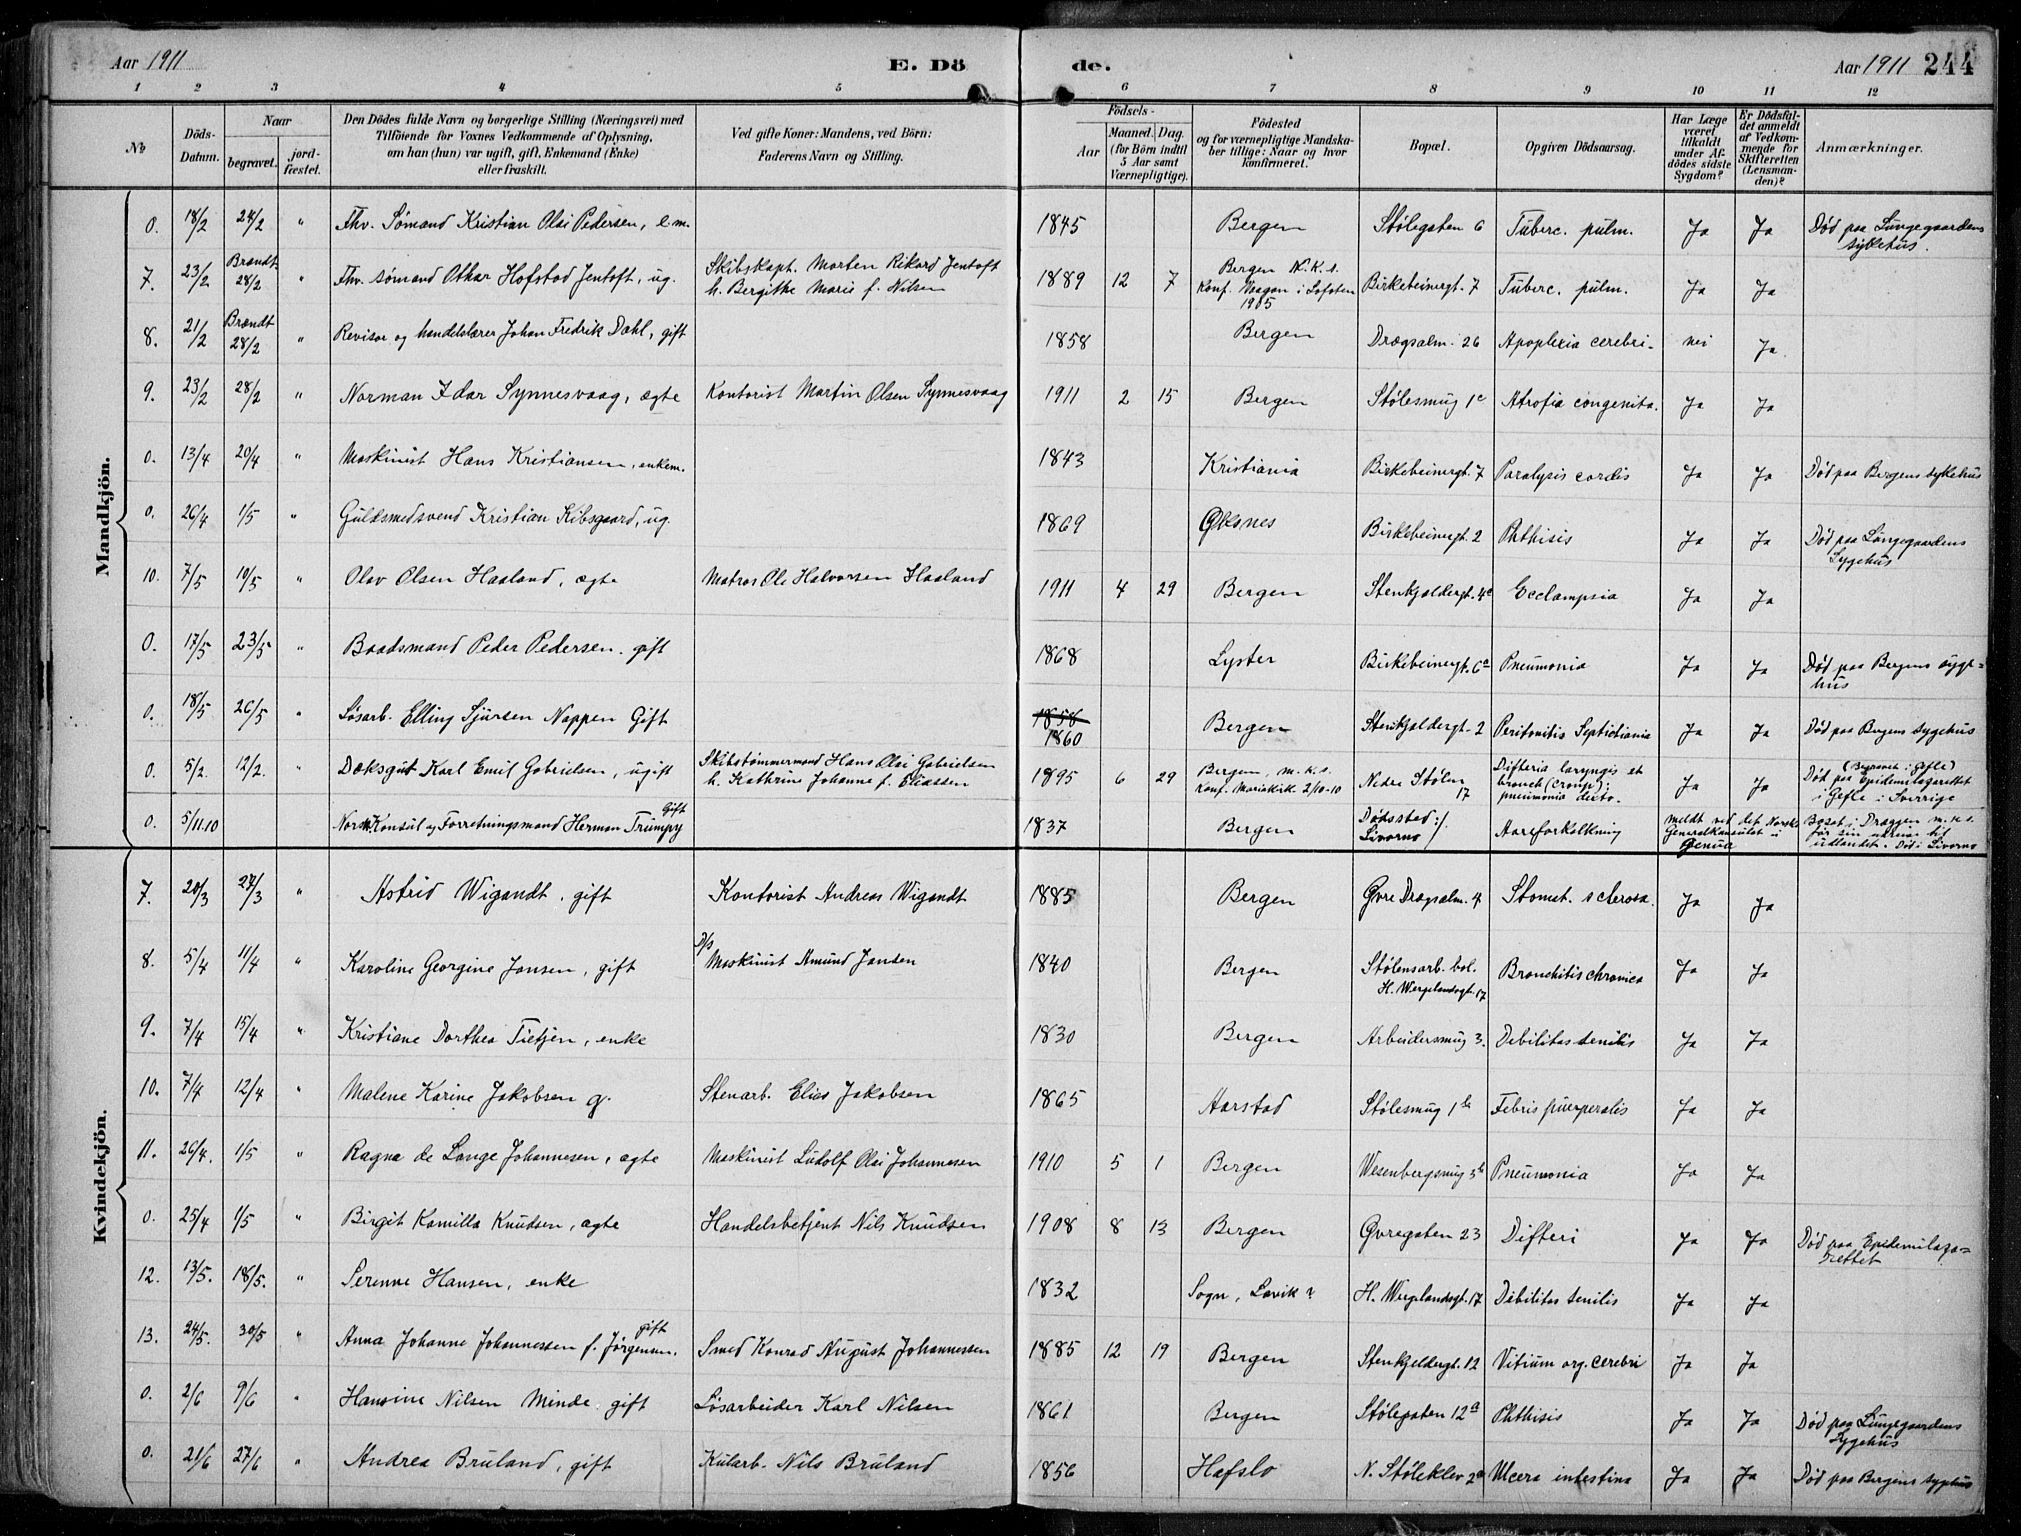 Aar 1911 E. Dö de. Aar 1911 244
1 2 3 4 5 6 7 8 9 10 11 12
No
Döds-Datum.
Naar begravet. jordfæstet.
Den Dödes fulde Navn og borgerlige Stilling (Næringsvei) med
Tilföiende for Voxnes Vedkommende af Oplysning,
om han (hun) var ugift, gift, Enkemand (Enke)
eller fraskilt.
Ved gifte Koner: Mandens, ved Börn:
Faderens Navn og Stilling.
Födsels-
Aar Maaned. Dag.
(for Börn indtil
5 Aar samt
Værnepligtige).
Födested
og for værnepligtige Mandskaber tillige: Naar og hvor
konfirmeret.
Bopæl.
Opgiven Dödsaarsag.
Har Læge
været
tilkaldt
under Afdödes sidste
Sygdom?
Er Dödsfaldet anmeldt
af Vedkommende for
Skifteretten
(Lensmanden)?
Anmærkninger.
Mandkjön.
0. 18/2 24/2 " Fhv. Sømand Kristian Olai Pedersen, e.m. 1845 Bergen Stølegaten 6 Tuberc. pulm. Ja Ja Død paa Lungegaardens sykehus.
7. 23/2 Brændt 28/2 " Fhv. sømand Othar Hofstad Jentoft, ug. Skibskapt. Morten Rikard Jentoft h. Bergithe Marie f. Nilsen 1889 12 7 Bergen N.K.s. Konf. Vagan i Lofoten 1905 Birkebeinergt. 7 Tuberc. pulm. Ja Ja
8. 21/2 Brændt 28/2 " Revisor og handelslærer Johan Fredrik Dahl, gift 1858 Bergen Drægsalm. 26 Apoplexia cerebri- nei Ja
9. 23/2 28/2 " Norman Idar Synnesvaag, ægte Kontorist Martin Olsen Synnesvaag 1911 2 15 Bergen Stølesmug 1c Atrofia congenita. Ja Ja
0. 13/4 20/4 " Maskinist Hans Kristiansen, enkem. 1843 Kristiania Birkebeinergt. 7 Paralysis cordis Ja Ja Død paa Bergens sykehus
0. 26/4 1/5 " Guldsmedsvend Kristian Kibsgaard, ug. 1869 Øksnes Birkebeinergt. 2 Phthisis Ja Ja Død paa Lungegaardens Sygehus
10. 7/5 10/5 " Olav Olsen Haaland, ægte Matros Ole Halvorsen Haaland 1911 4 29 Bergen Stenkjeldergt. 4c Ecclampsia Ja Ja
0. 17/5 23/5 " Baadsmand Peder Pedersen. gift 1868 Lyster Birkebeinergt. 6a Pneumonia Ja Ja Død paa Bergens sygehus
0. 18/5 26/5 " Løsarb. Elling Sjursen Nappen Gift 1858 1860 Bergen Stenkjeldergt. 2 Peritonitis Ja Ja Død paa Bergens sygehus
0. 5/2. 12/2. " Dæksgut Karl Emil Gabrielsen, ugift Skibstømmermand Hans Olai Gabrielsen h. Kathrine Johanne f. Eliassen 1895 6 29 Bergen, m.k.s. Konf. Mariakirk 2/10-10 Nedre Stølen 17 Difteria laryngis et bronch (croup): pneumonia dexto. Ja Ja (Begravet i Gefle) Død paa Epidemilazarettet i Gefle i Sverrige
0. 5/11.10 Norsk Konsul og Forretningsmand Herman Trumpy Gift 1837 Bergen Dødssted: Livorno Aareforkalkning meldt ved det Norske Generalkonsulat i Genua Bosat i Dræggen m.k.s. før sin udreise til udlandet. Død i Livorno
Kvindekjön.
7. 20/3 27/3 " Astrid Wigandt, gift Kontorist Andreas Wigandt 1885 Bergen Øvre Dragsalm. 4 Stomst. sclerosa. Ja Ja
8. 5/4 11/4 " Karoline Georgine Jansen, gift D/s Maskinist Amund Jansen 1840 Bergen Stølensarb. bol. H. Wergelandsgt. 17 Bronchitis chronica Ja Ja
9. 7/4 15/4 " Kristiane Dorthea Tietjen, enke 1830 Bergen Arbeidersmug 3. Debilitas senilis Ja Ja
10. 7/4 12/4 " Malene Karine Jakobsen g. Stenarb. Elias Jakobsen 1865 Aarstad Stølesmug 1b Febris puerperalis Ja Ja
11. 26/4. 1/5 " Ragna de Lange Johannesen, ægte Maskinist Ludolf Olai Johannesen 1910 5 1 Bergen Wesenbergsmug 3b Pneumonia Ja Ja
0. 25/4 1/5 " Birgit Kamilla Knudsen, ægte Handelsbetjent Nils Knudsen 1908 8 13 Bergen Øvregaten 23 Difteri Ja Ja Død paa Epidemilazarettet
12. 13/5. 18/5. " Serenne Hansen, enke 1832 Sogn, Lavik? H. Wergelandsgt. 17 Debilitas senilis Ja Ja
13. 24/5. 30/5 " Anna Johanne Johannessen f. Jørgensen. gift Smed Konrad August Johannessen 1885 12 19 Bergen Stenkjeldergt. 12 Vitium org. cerebri Ja Ja
0. 2/6 9/6 " Hansine Nilsen Minde. gift Løsarbeider Karl Nilsen 1861 Bergen Stølegaten 12a Phthisis Ja Ja Død paa Lungegaardens Sygehus
0. 21/6 27/6 " Andrea Bruland, gift Kularb. Nils Bruland 1856 Hafslo N. Støleklev 2a Ulcera intestina Ja Ja Død paa Bergens sygehus